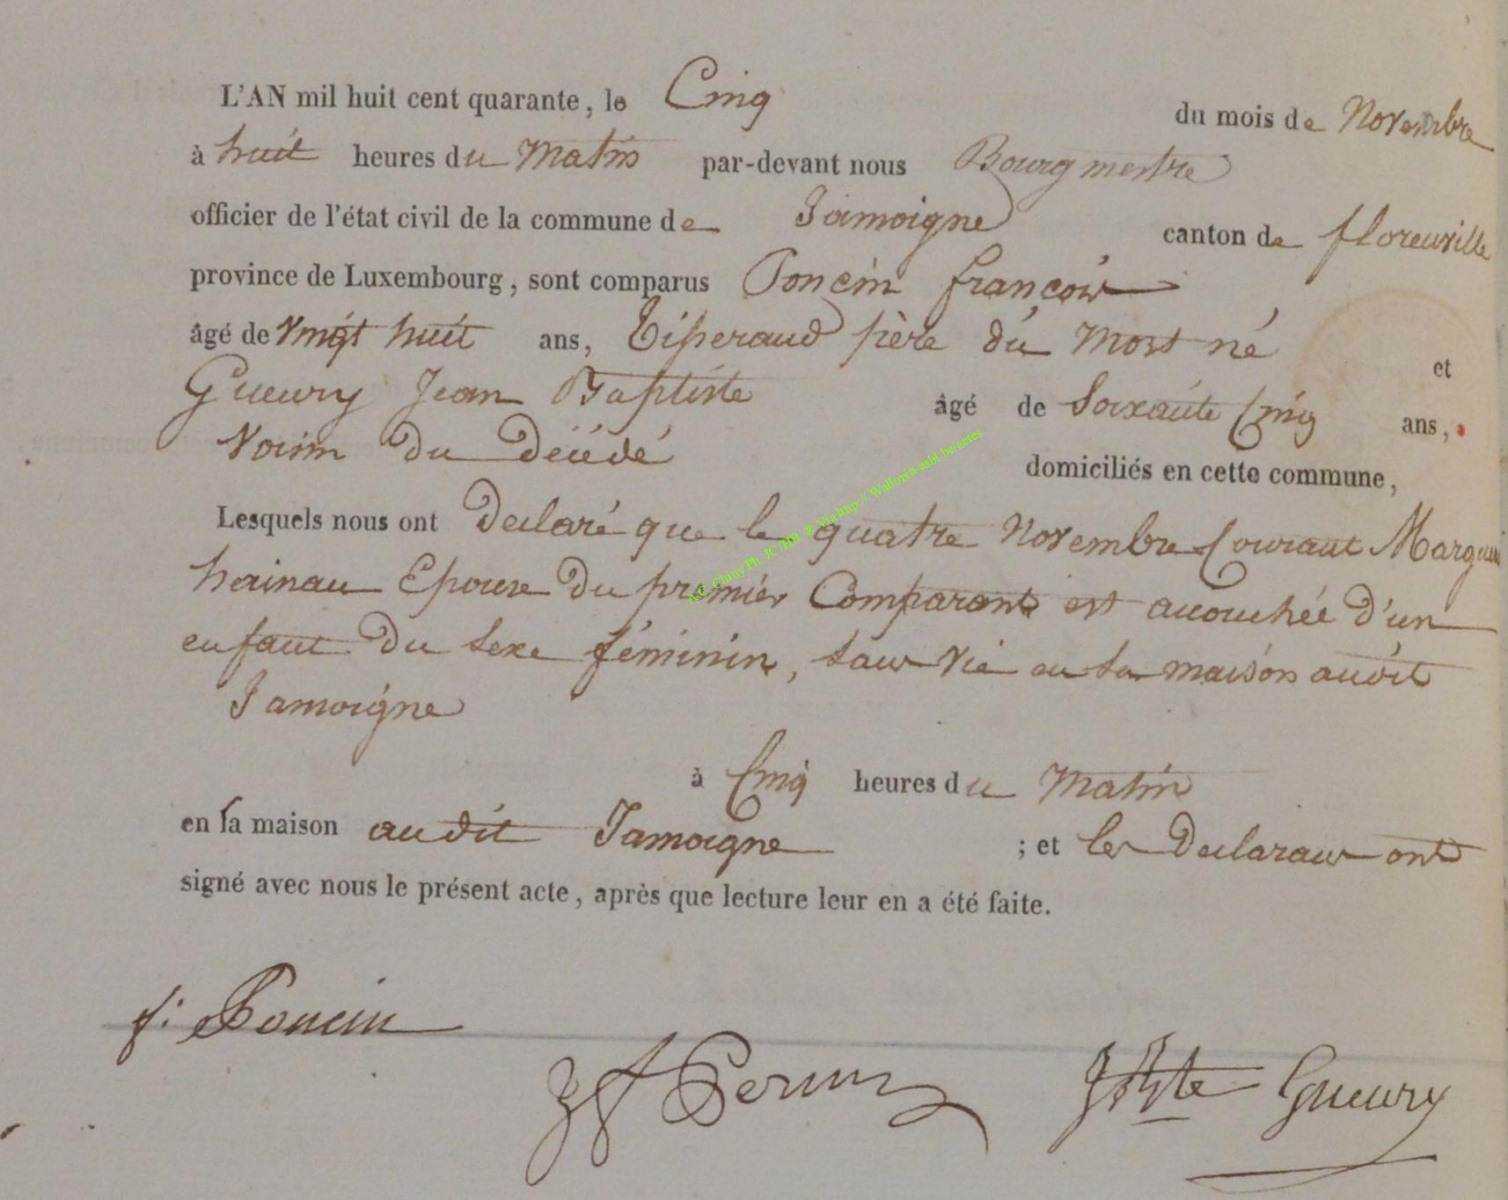 L'AN mil huit cent quarante, le Cinq du mois de Novembre
à huit heures du Matin par-devant nous Bourgmestre
officier de l'état civil de la commune de Jamoigne canton de florenville
province de Luxembourg, sont comparus Poncin françois
âgé de vingt huit ans, Tisserand père du Mort né et
Gueury Jean Baptiste âgé de Soixante Cinq ans,
Voisin du Décédé domiciliés en cette commune,
Lesquels nous ont Declaré que le quatre Novembre Courant
hainau Epouse Du premier Comparant est acouchée D'un
enfant Du Sexe féminin, sans vie en sa maison audit
Jamoigne
à Cinq heures du Matin
en la maison audit Jamoigne ; et les Declarans ont
signé avec nous le présent acte, après que lecture leur en a été faite.
f: Poncin
JBte Gueury